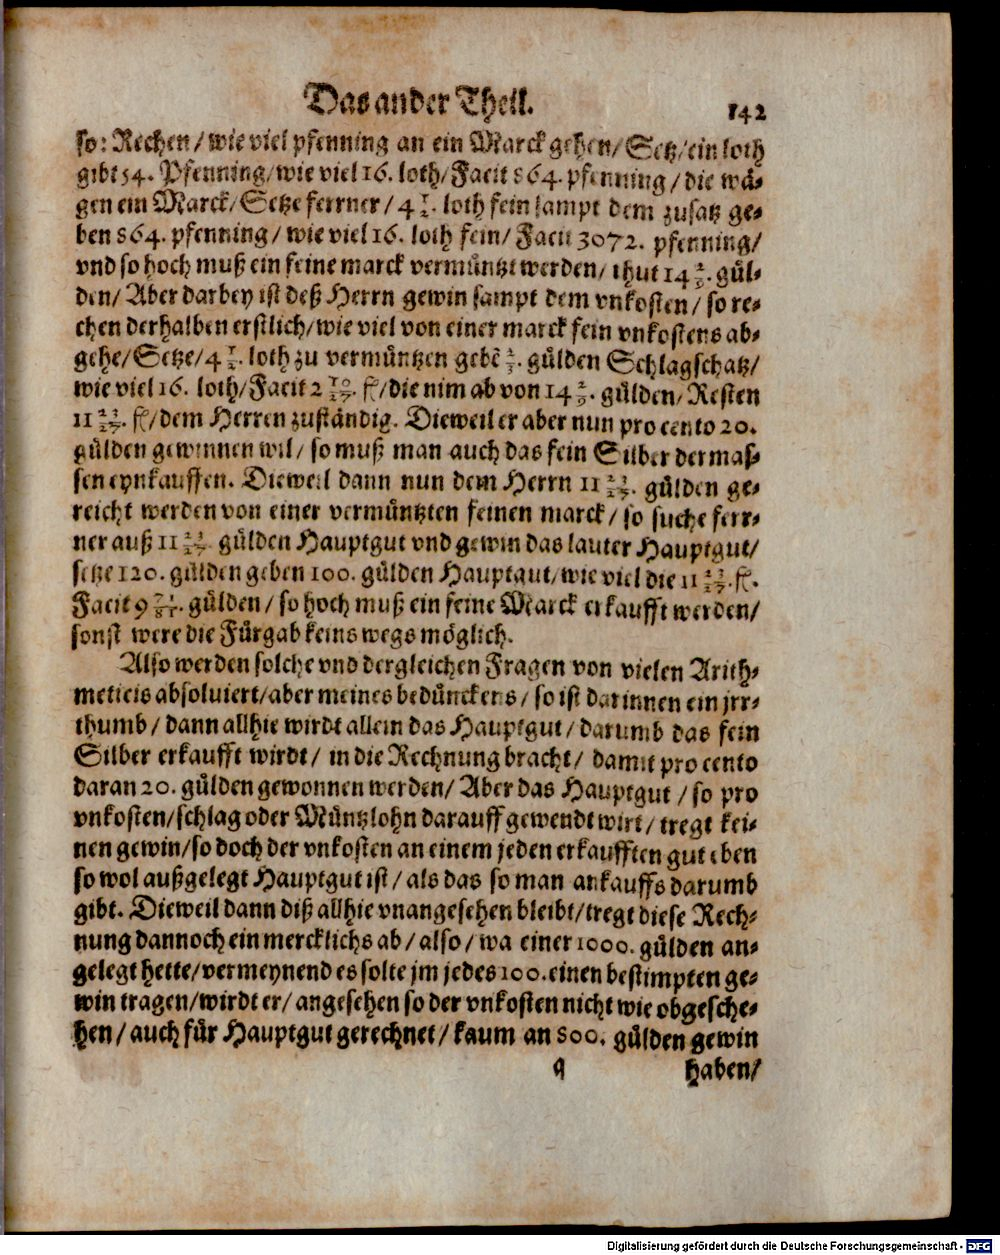 Das ander Theil.
142
so: Rechen/ wie viel pfenning an ein Marck gehen/ Setz/ ein loth
gibt 54. Pfenning/ wie viel 16. loth/ Facit 864. pfenning/ die wä⸗
gen ein Marck/ Setze ferrner/ 4 1/2. loth fein sampt dem zusatz ge⸗
ben 864. pfenning/ wie viel 16. loth fein/ Facit 3072. pfenning/
vnd so hoch muß ein feine marck vermüntzt werden/ thut 14 2/9. gül⸗
den/ Aber darbey ist deß Herrn gewin sampt dem vnkosten/ so re⸗
chen derhalben erstlich/ wie viel von einer marck fein vnkostens ab⸗
gehe/ Setze/ 4 1/2. loth zu vermüntzen gebẽ 2/3. gülden Schlagschatz/
wie viel 16. loth/ Facit 2 10/27. fl/ die nim ab von 14 2/9. gülden/ Resten
11 23/27. fl/ dem Herren zuständig. Dieweil er aber nun pro cento 20.
gülden gewinnen wil/ so muß man auch das fein Silber dermas⸗
sen eynkauffen. Dieweil dann nun dem Herrn 11 23/27. gülden ge⸗
reicht werden von einer vermüntzten feinen marck/ so suche ferr⸗
ner auß 11 23/27. gülden Hauptgut vnd gewin das lauter Hauptgut/
setze 120. gülden geben 100. gülden Hauptgut/ wie viel die 11 23/27. fl.
Facit 9 71/81. gülden/ so hoch muß ein feine Marck erkaufft werden/
sonst were die Fürgab keins wegs möglich.
Also werden solche vnd dergleichen Fragen von vielen Arith⸗
meticis absoluiert/ aber meines bedünckens/ so ist darinnen ein jrr⸗
thumb/ dann allhie wirdt allein das Hauptgut/ darumb das fein
Silber erkaufft wirdt/ in die Rechnung bracht/ damit pro cento
daran 20. gülden gewonnen werden/ Aber das Hauptgut/ so pro
vnkosten/ schlag oder Müntzlohn darauff gewendt wirt/ tregt kei⸗
nen gewin/ so doch der vnkosten an einem jeden erkaufften gut eben
so wol außgelegt Hauptgut ist/ als das so man ankauffs darumb
gibt. Dieweil dann diß allhie vnangesehen bleibt/ tregt diese Rech⸗
nung dannoch ein mercklichs ab/ also/ wa einer 1000. gülden an⸗
gelegt hette/ vermeynend es solte jm jedes 100. einen bestimpten ge⸗
win tragen/ wirdt er/ angesehen so der vnkosten nicht wie obgesche⸗
hen/ auch für Hauptgut gerechnet/ kaum an 800. gülden gewin
q haben/
Digitalisierung gefördert durch die Deutsche Forschungsgemeinschaft - DFG